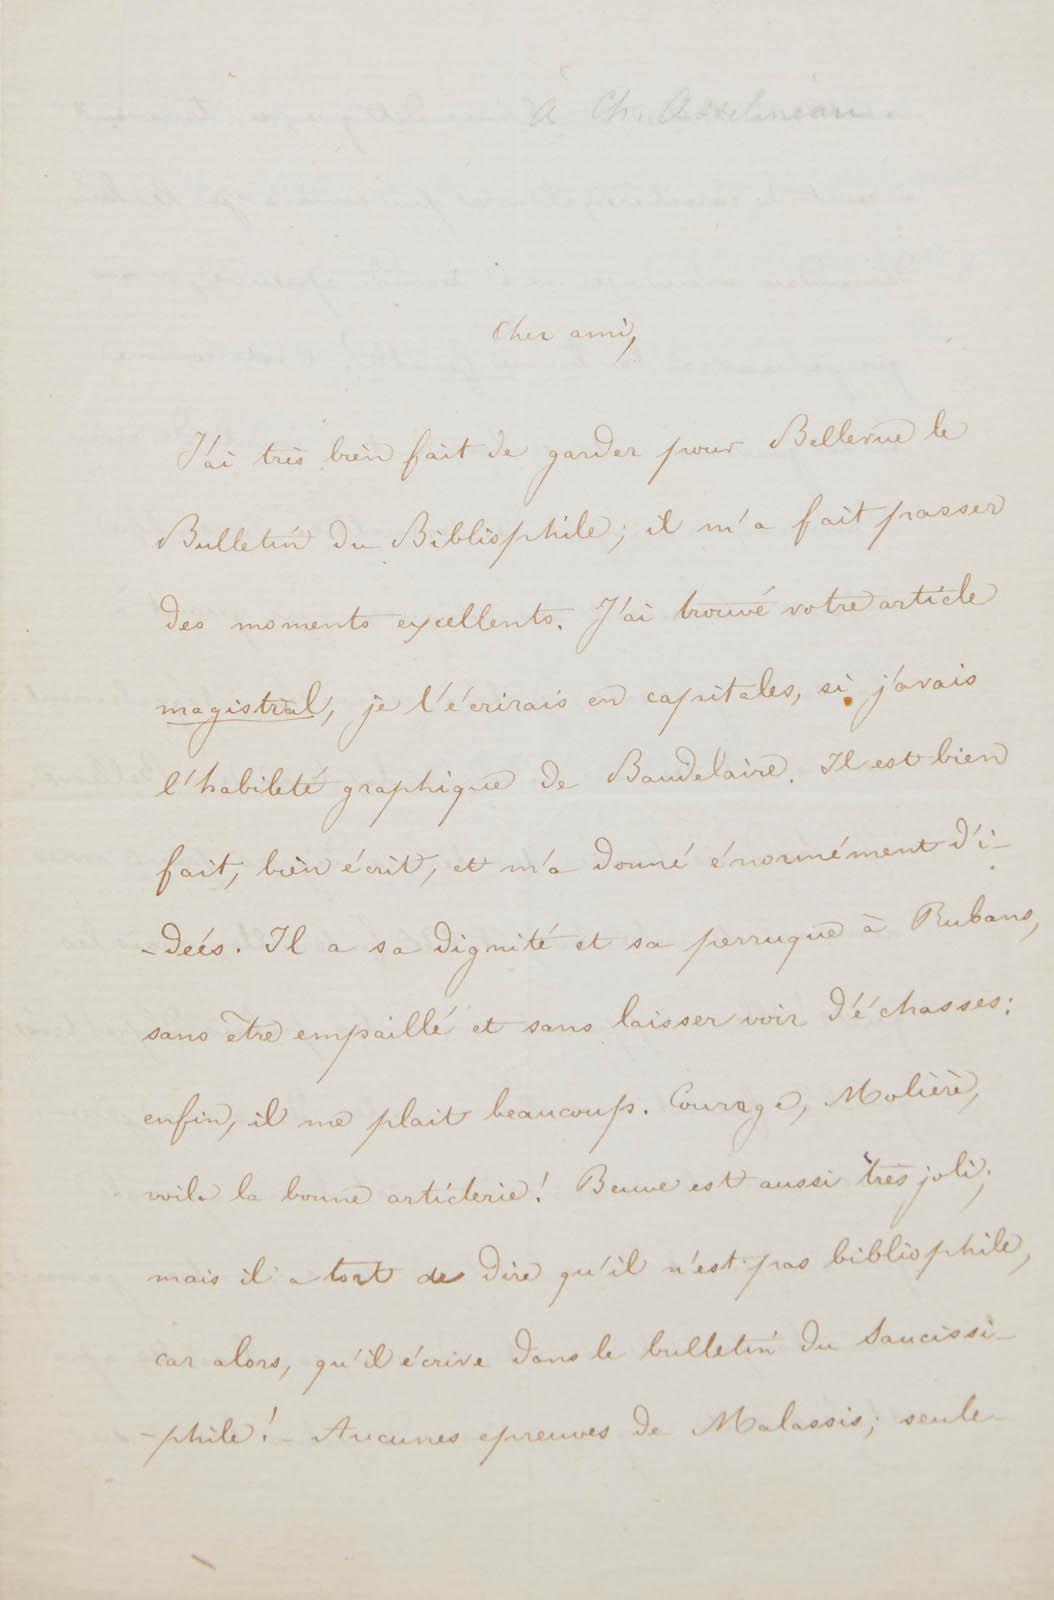 à Ch. Asselineau.
Cher ami,
J'ai très bien fait de garder pour Bellevue le
Bulletin du Bibliophile; il m'a fait passer
des moments excellents. J'ai trouvé votre article
magistral, je l'écrirais en capitales, si j'avais
l'habileté graphique de Baudelaire. Il est bien
fait, bien écrit, et m'a donné énormément d'i-
-deés. Il a sa dignité et sa perruque à Rubans,
sans être empaillé et sans laisser voir d'échasses;
enfin, il me plait beaucoup. Courage, Molière,
voila la bonne articlerie! Beuve est aussi très joli;
mais il a tort de dire qu'il n'est pas bibliophile,
car alors, qu'il écrive dans le bulletin du Saucissi-
-phile! - Aucunes epreuves de Malassis; seule-